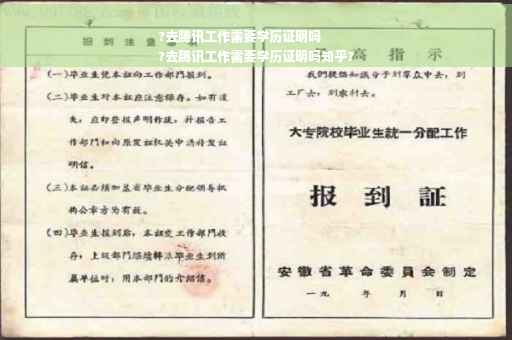 ?去腾讯工作需要学历证明吗
?去腾讯工作需要学历证明吗知乎?
报到注意事项
(一)毕业生凭本证向工作部门报到。
(二)毕业生对本证应注意保存。如有遗
失,应即登报声明作废,并报告工
作部门和向原发证机关申请补发证
明信。
(三)本证必须加盖省毕业生分配领导机
构公章方为有效。
(四)毕业生报到后,本证交工作部门收
存;上级部门
属单位时,用本部门的介绍信。
高指示
我们提倡知识分子到群众中去,到
工厂去,到农村去。
大专院校毕业生統一分配工作
报到証
安徽省革命委員会制定
一九 年 月 日